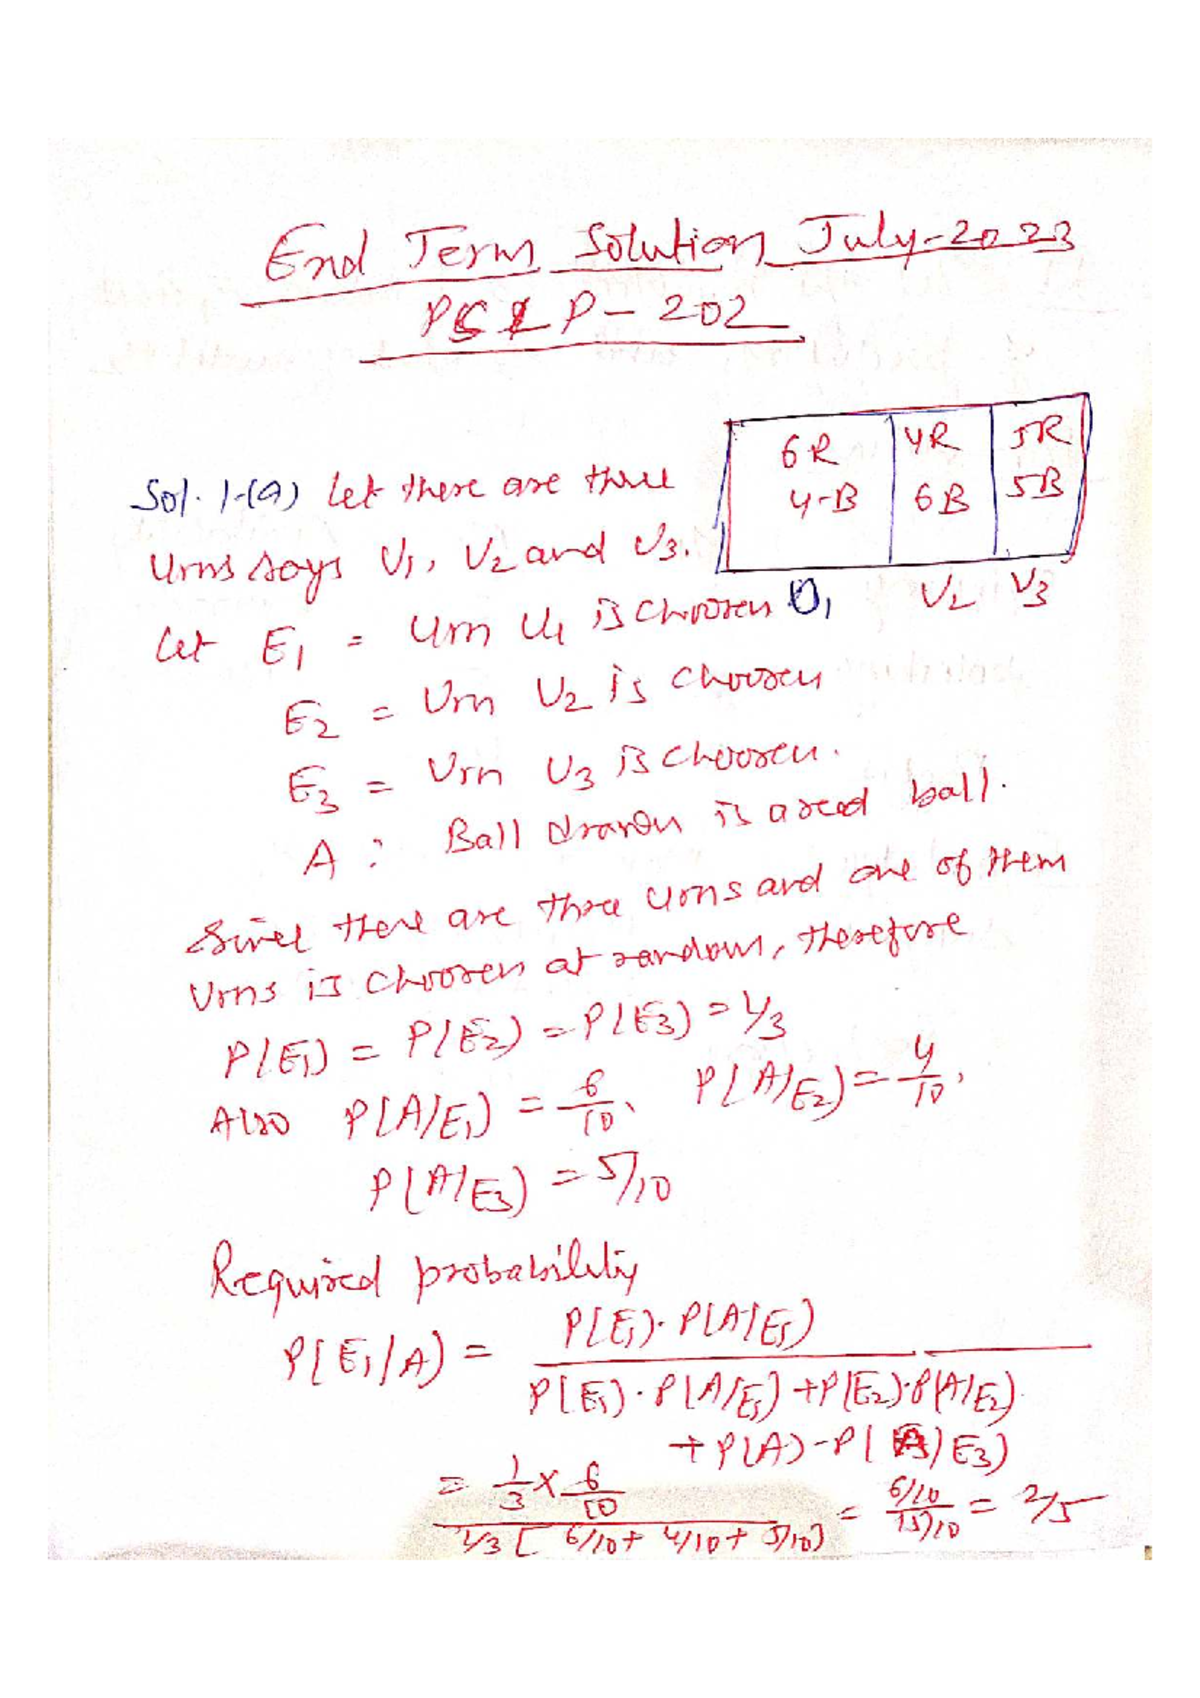 End Term Solution July-2023
PS&LP-202
6R 4R 5R
4-B 6B 5B
U1 U2 U3
Sol. 1-(a) Let there are three
Urns says U1, U2 and U3.
Let E1 = Urn U1 is choosen
E2 = Urn U2 is choosen
E3 = Urn U3 is choosen.
A : Ball drawn is a red ball.
Since there are three urns and one of them
Urns is choosen at random, therefore
P(E1) = P(E2) = P(E3) = 1/3
Also P(A/E1) = 6/10, P(A/E2) = 4/10,
P(A/E3) = 5/10
Required probability
P(E1/A) = P(E1)·P(A/E1)
P(E1)·P(A/E1)+P(E2)·P(A/E2)
+P(A)-P(A/E3)
= 1/3 × 6/10
1/3 [6/10+4/10+5/10] = 6/10 / 15/10 = 2/5